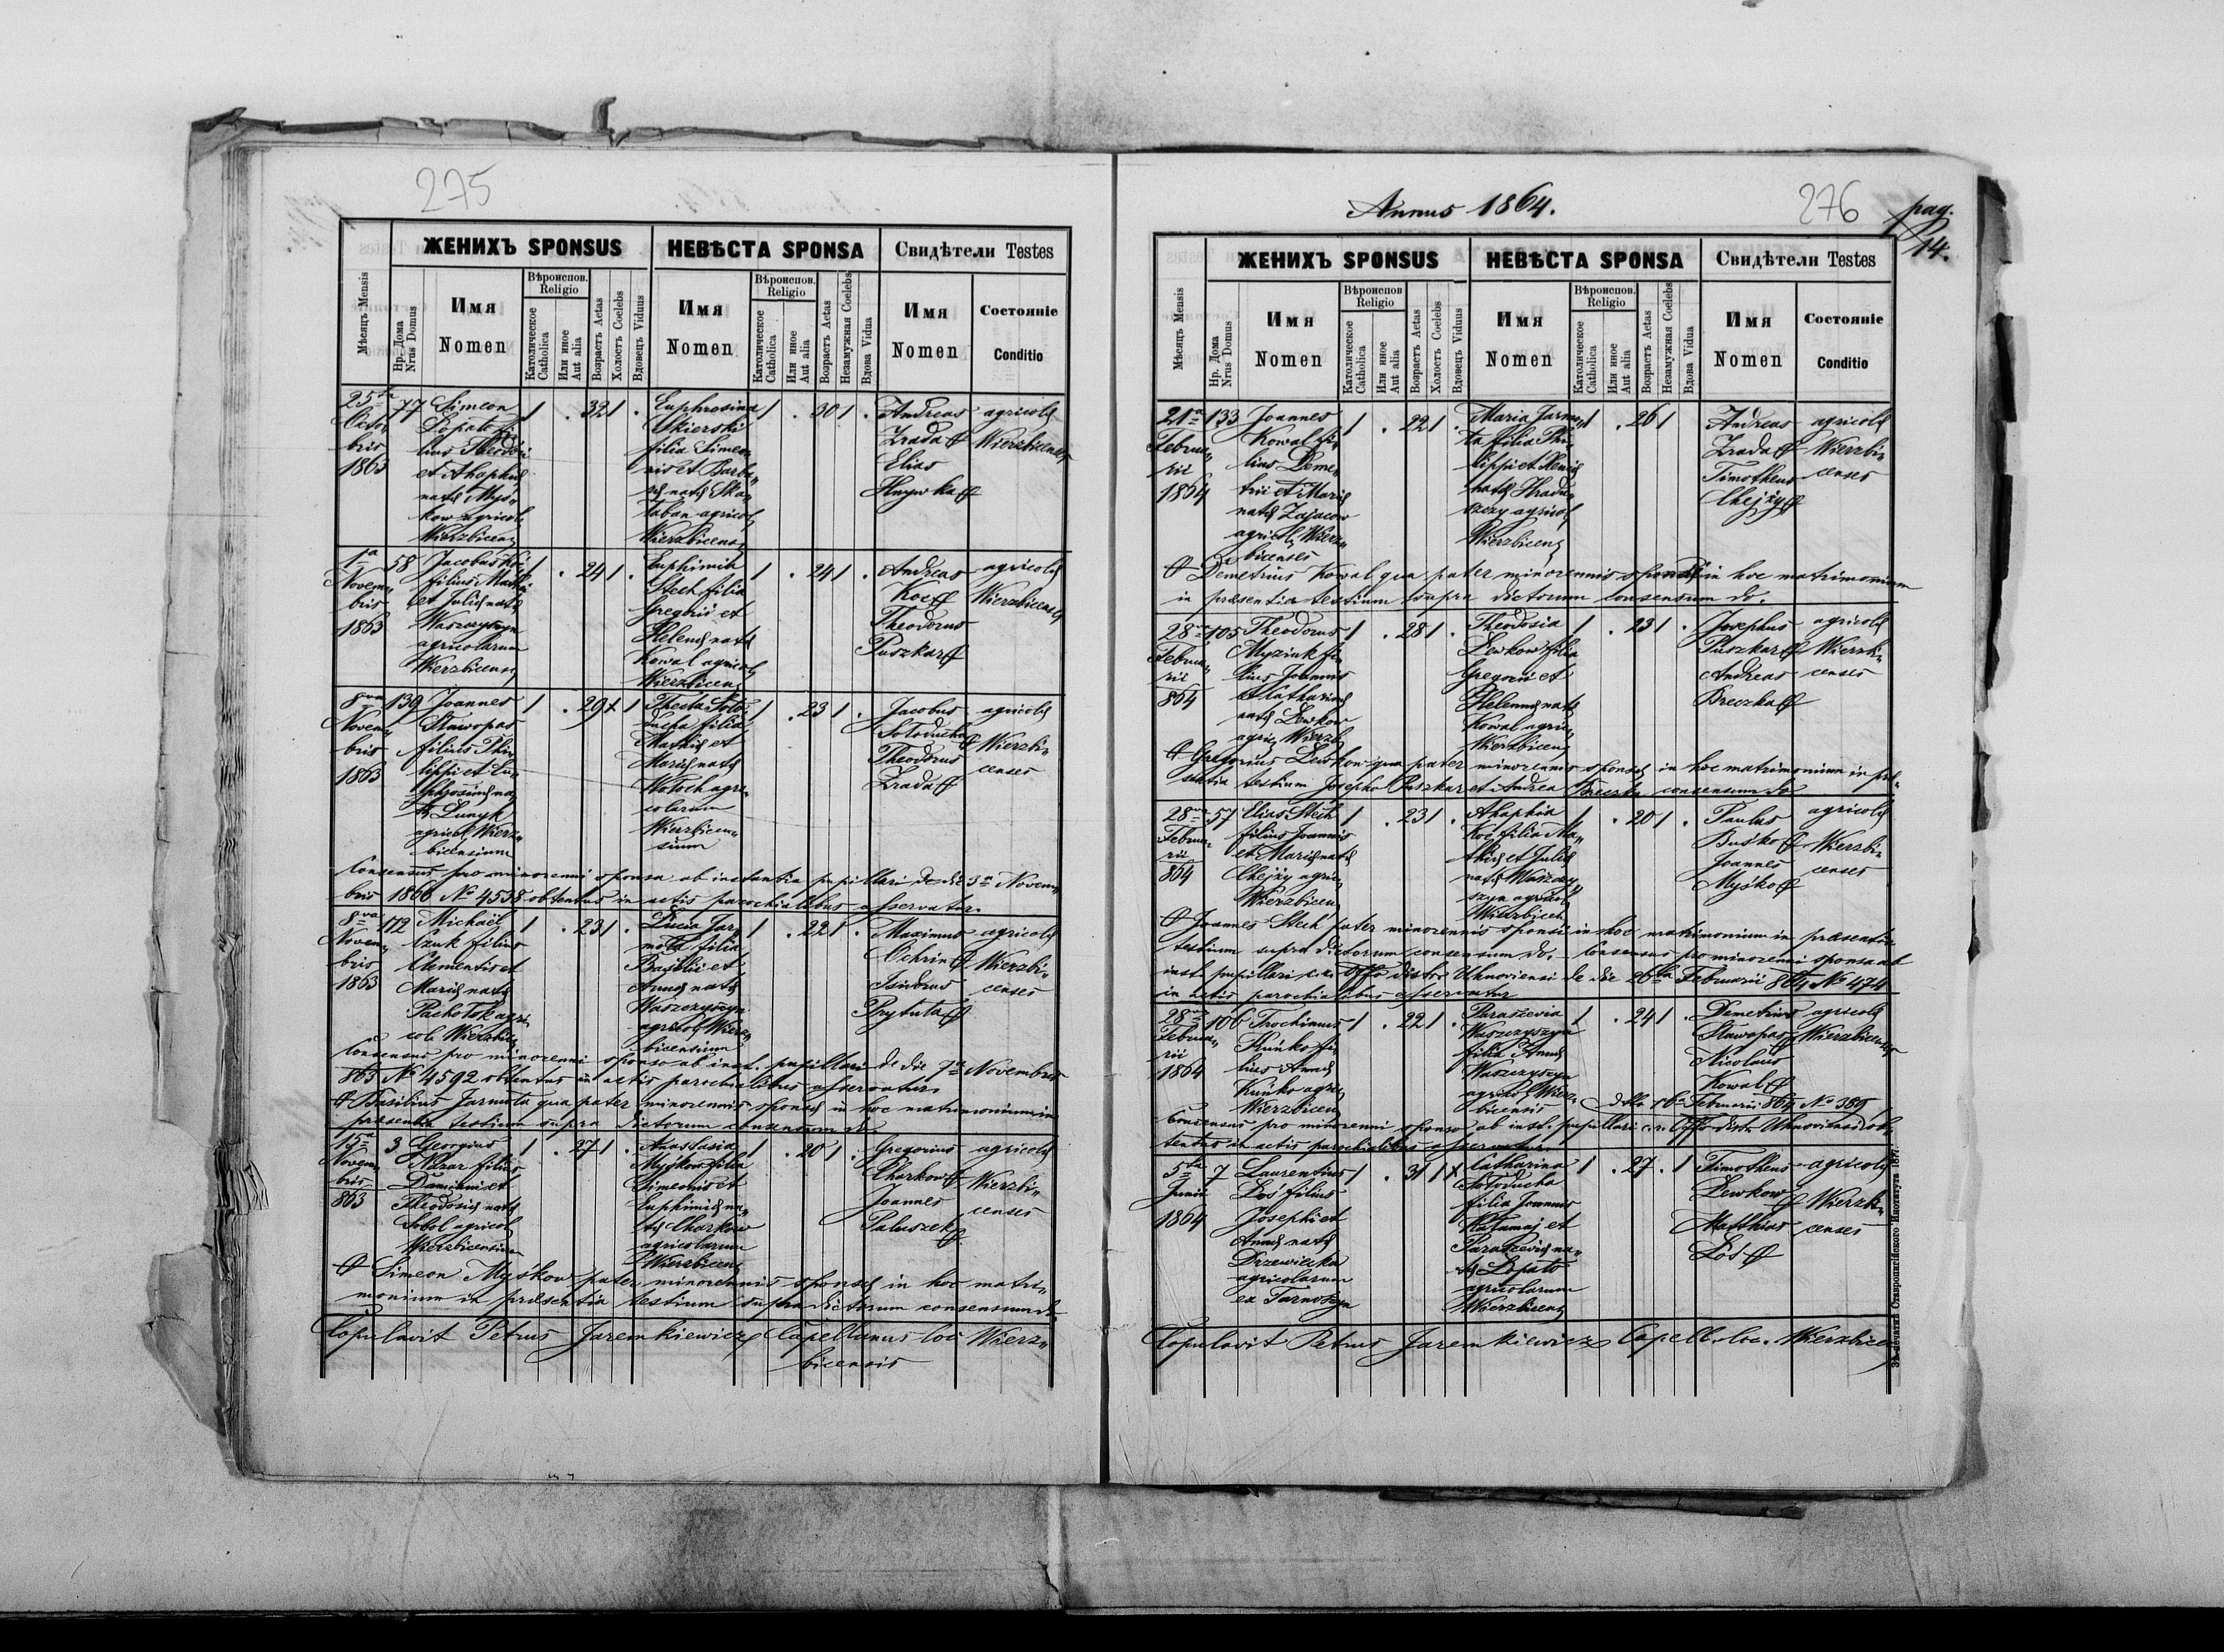 275
ЖЕНИХЪ SPONSUS
НЕВѢСТА SPONSA
Свидѣтели Testes
Мѣсяцъ Mensis
Нр. Дома
Nrus Domus
Имя
Nomen
Вѣроиспов.
Religio
Католическое
Catholica
Или иное
Aut alia
Возрастъ Aetas
Холостъ Coelebs
Вдовецъ Viduus
Имя
Nomen
Вѣроиспов.
Religio
Католическое
Catholica
Или иное
Aut alia
Возрастъ Aetas
Незамужная Coelebs
Вдова Vidua
Имя
Nomen
Состояніе
Conditio
25ta
Octo„
bris
1863
77
Simeon
Łopato fi„
lius Theodori
et Ahaphiæ
natæ Myś„
kow agricol
Wierzbicen
1 . 32 1 .
Euphrosina
Skierski
filia Simeo„
nis et Barba„
ræ natæ Ska„
taban agricol
Wierzbicens
1 . 30 1 .
Andreas
Zrada
Elias
Hnywka
agricolæ
Wierzbicenses
1ma
Novem„
bris
1863
58
Jacobus Koć
filius Mathiæ
et Juliæ natæ
Waszczyszyn
agricolarum
Wierzbicens
1 . 24 1 .
Euphimia
Stech filia
Gregorii et
Helenæ natæ
Kowal agricol
Wierzbicen
1 . 24 1 .
Andreas
Koć
Theodorus
Puszkar
agricolæ
Wierzbicenses
8va
Novem„
bris
1863
139
Joannes
Stawopas
filius Phi„
lippi et Eu„
phrosinæ na„
tæ Łunyk
agricol Wierz„
bicensium
1 . 29 + 1
Thecla Soło„
ducha filia
Mathiæ et
Mariæ natæ
Wołoch agri„
colarum
Wierzbicen„
sium
1 . 23 1 .
Jacobus
Sołoducha
Theodorus
Zrada
agricolæ
Wierzbi„
censes
Consensus pro minorenni sponsa ab instantia pupillari de die 3a Novem„
bris 1866 No 4538 obtentus in actis parochialibus asservatur.
8va
Novem„
bris
1863
112
Michaël
Czuk filius
Clementis et
Mariæ natæ
Pachołok agri„
col. Wierzbic
1 . 23 1 .
Lucia Jar„
mota filia
Basilii et
Annæ natæ
Waszczyszyn
agricol Wierz„
bicensium
1 . 22 1 .
Maximus
Ochrin
Isidorus
Prytuła
agricolæ
Wierzbi„
censes
Consensus pro minorenni sponso ab inst. pupillari de die 7a Novembris
863 No 4592 obtentus in actis parochialibus asservatur
Basilius Jarmota qua pater minorennis sponsæ in hoc matrimonium in
præsentia testium supra dictorum consensum do.
15a
Novem„
bris
863
3
Georgius
Nazar filius
Damiani et
Theodosiæ natæ
Sobol agricol
Wierzbicensium
1 . 27 1 .
Anastasia
Myśkow filia
Simeonis et
Euphimiæ na„
tæ Charkow
agricolarum
Wierzbicens
1 . 20 1 .
Gregorius
Charkow
Joannes
Paluszek
agricolæ
Wierzbi„
censes
Simeon Myśkow pater minorennis sponsæ in hoc matri„
monium in præsentia testium supra dictorum consensum do
Copulavit Petrus Jaremkiewicz Capellanus loc Wierz„
bicensis
Annus 1864.
276
pag.
14.
ЖЕНИХЪ SPONSUS
НЕВѢСТА SPONSA
Свидѣтели Testes
Мѣсяцъ Mensis
Нр. Дома
Nrus Domus
Имя
Nomen
Вѣроиспов
Religio
Католическое
Catholica
Или иное
Aut alia
Возрастъ Aetas
Холостъ Coelebs
Вдовецъ Viduus
Имя
Nomen
Вѣроиспов.
Religio
Католическое
Catholica
Или иное
Aut alia
Возрастъ Aetas
Незамужная Coelebs
Вдова Vidua
Имя
Nomen
Состояніе
Conditio
21a
Februa„
rii
1864
133
Joannes
Kowal fi„
lius Deme„
trii et Mariæ
natæ Zajacow
agricol Wierz„
bicenses
1 . 22 1 .
Maria Jarmo„
ta filia Phi„
lippi et Xeniæ
natæ Hradu„
szczy agricol
Wierzbicens
1 . 26 1
Andreas
Zrada
Timotheus
Chejży
agricolæ
Wierzbi„
censes
Demetrius Kowal qua pater minorennis sponsi in hoc matrimonium
in præsentia testium supra dictorum consensum do.
28va
Februa„
rii
864
105
Theodorus
Myzink fi„
lius Joannis
et Catharinæ
natæ Lewkow
agric. Wierzb
1 . 28 1 .
Theodosia
Lewkow filia
Gregorii et
Helennæ natæ
Kowal agric„
Wierzbicen
1 . 23 1 .
Josephus
Puszkar
Andreas
Breczka
agricolæ
Wierzbi„
censes
Gregorius Lewkow qua pater minorennis sponsæ in hoc matrimonium in præ„
sentia testium Josepho Puszkar et Andrea Breczka consensum do
28va
Februa„
rii
864
57
Elias Stech
filius Joannis
et Mariæ natæ
Chejży agric„
Wierzbicen
1 . 23 1 .
Ahaphia
Koć filia Ma„
thiæ et Juliæ
natæ Waszczy„
szyn agricol
Wierzbicen
1 . 20 1 .
Paulus
Buśko
Joannes
Myśko
agricolæ
Wierzbi„
censes
Joannes Stech pater minorennis sponsi in hoc matrimonium in præsentia
testium supra dictorum consensum do. Consensus pro minorenni sponsa ab
inst. pupillari c.r. Offo distr Uhnoviensi de die 26ta Februarii 864 No 474
in actis parochialibus asservatur
28va
Februa„
rii
1864
106
Trochimus
Kuńko fi„
lius Annæ
Kuńko agric
Wierzbicen
1 . 22 1 .
Parascevia
Waszczyszyn
filia Annæ
Waszczyszyn
agricol Wierz„
bicensis
1 . 24 1 .
Demetrius
Stawopas
Nicolaus
Kowal
agricolæ
Wierzbicenses
ddto 16a Februarii 864 No 389
Consensus pro minorenni sponso ab inst. pupillari c.r. Offo distr. Uhnoviensi ob„
tentus in actis parochialibus asservatur.
5ta
Junii
1864
7
Laurentius
Łoś filius
Josephi et
Annæ natæ
Drzewicka
agricolarum
ex Tarnoszyn
1 . 31 1 +
Catharina
Sołoducha
filia Joannis
Kałamaj et
Parasceviæ na„
tæ Łopato
agricolarum
Wierzbicens
1 . 27 . 1
Timotheus
Lewkow
Matthias
Łoś
agricolæ
Wierzbi„
censes
Copulavit Petrus Jaremkiewicz Capell. loc. Wierzbicen
Зъ печатнѣ Ставропигійского Института 1877.